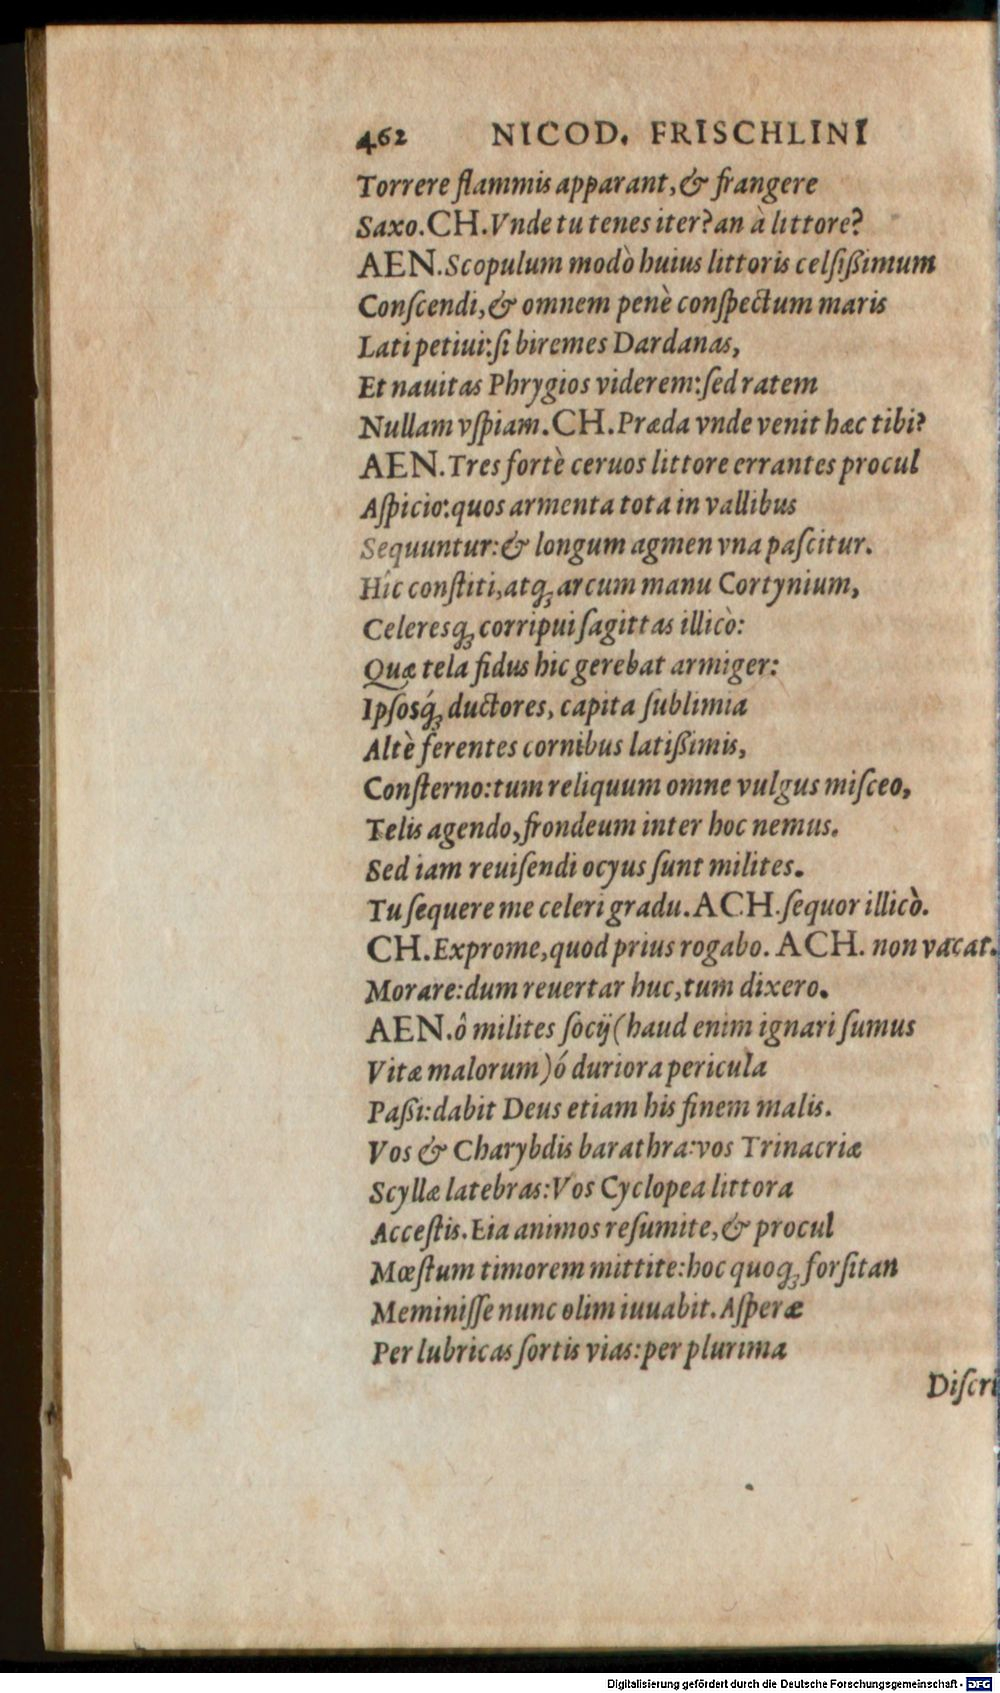 462 NICOD. FRISCHLINI
Torrere flammis apparant, & frangere
Saxo. CH. Vnde tu tenes iter? an à littore?
AEN. Scopulum modò huius littoris celſißimum
Conſcendi, & omnem penè conſpectum maris
Lati petiui: ſi biremes Dardanas,
Et nauitas Phrygios viderem: ſed ratem
Nullam vſpiam. CH. Præda vnde venit hæc tibi?
AEN. Tres fortè ceruos littore errantes procul
Aſpicio: quos armenta tota in vallibus
Sequuntur: & longum agmen vna paſcitur.
Hîc conſtiti, atq́ꝫ arcum manu Cortynium,
Celeresqꝫ corripui ſagittas illicò:
Quæ tela fidus hic gerebat armiger:
Ipſosq́ꝫ ductores, capita ſublimia
Altè ferentes cornibus latißimis,
Conſterno: tum reliquum omne vulgus miſceo,
Telis agendo, frondeum inter hoc nemus.
Sed iam reuiſendi ocyus ſunt milites.
Tu ſequere me celeri gradu. ACH. ſequor illicò.
CH. Exprome, quod prius rogabo. ACH. non vacat.
Morare: dum reuertar huc, tum dixero.
AEN. ô milites ſocij (haud enim ignari ſumus
Vitæ malorum) ó duriora pericula
Paßi: dabit Deus etiam his finem malis.
Vos & Charybdis barathra: vos Trinacriæ
Scyllæ latebras: Vos Cyclopea littora
Acceſtis. Eia animos reſumite, & procul
Mœſtum timorem mittite: hoc quoqꝫ forſitan
Meminiſſe nunc olim iuuabit. Aſperæ
Per lubricas ſortis vias: per plurima
Diſcri
Digitalisierung gefördert durch die Deutsche Forschungsgemeinschaft - DFG